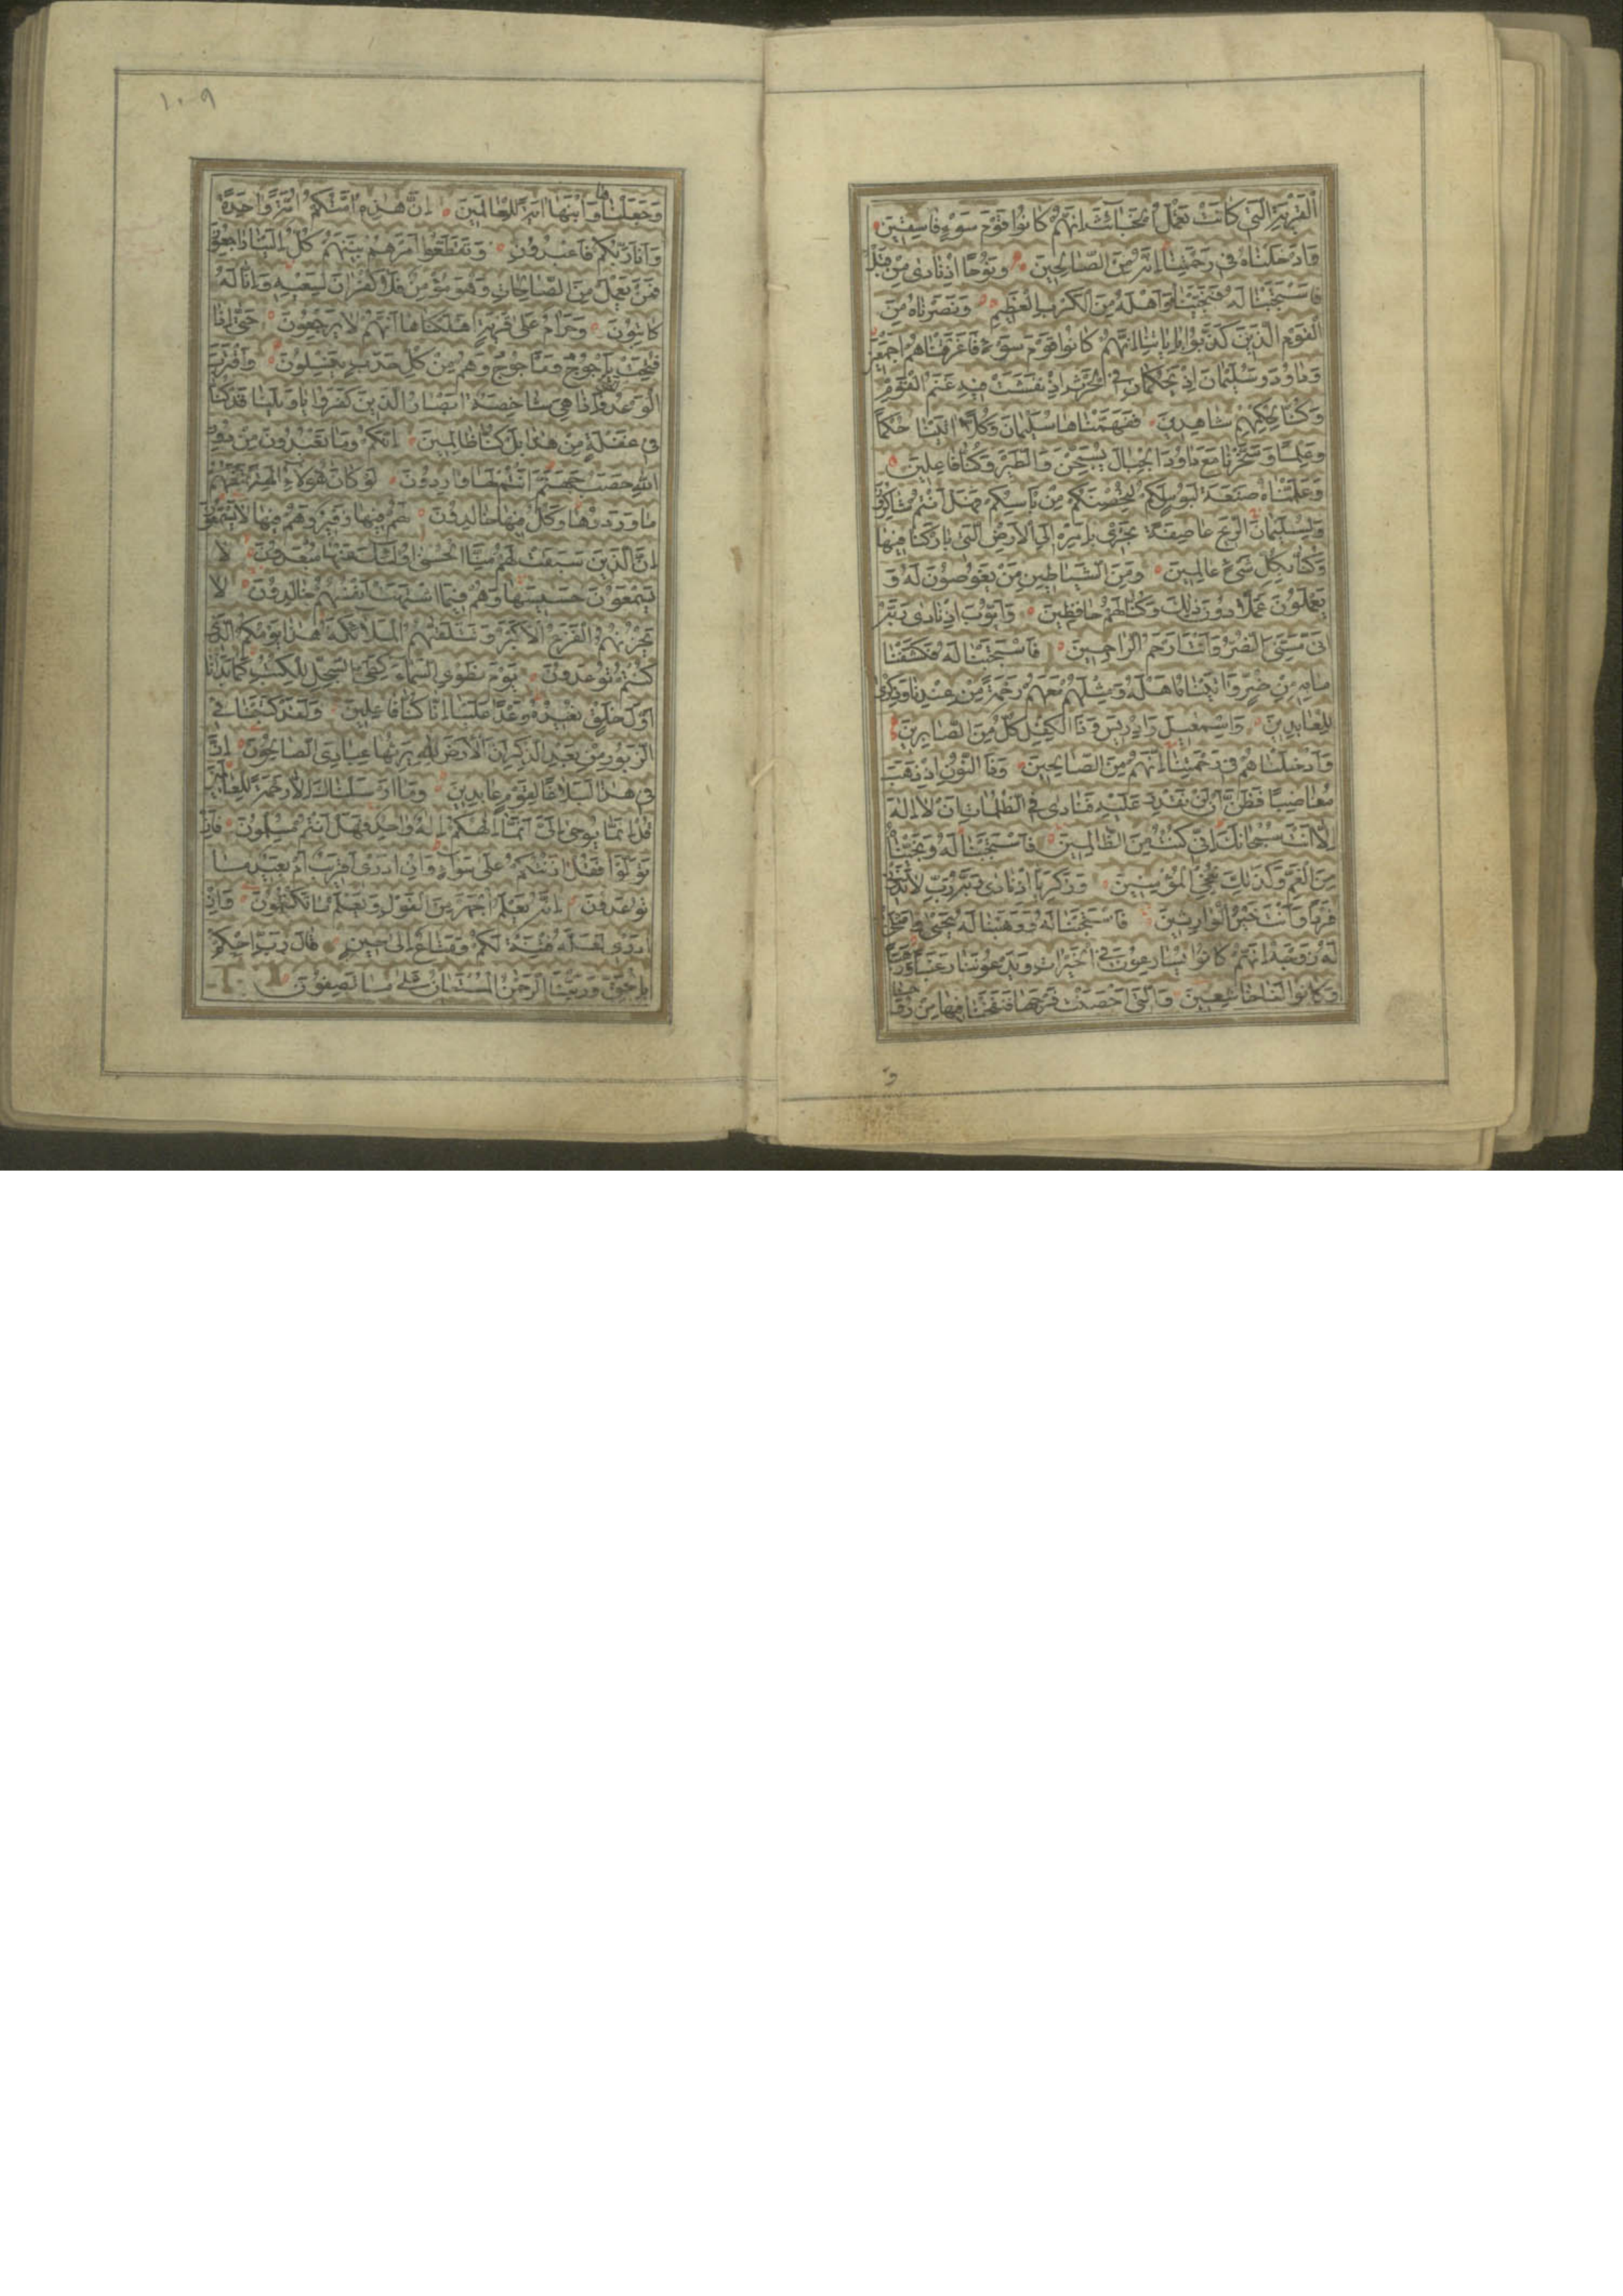 الْقَرْيَةِ الَّتِي كَانَتْ تَعْمَلُ الْخَبَائِثَ اِنَّهُمْ كَانُوا قَوْمَ سَوْءٍ فَاسِقِينَ
وَاَدْخَلْنَاهُ فِي رَحْمَتِنَا اِنَّهُ مِنَ الصَّالِحِينَ وَنُوحًا اِذْ نَادٰى مِنْ قَبْلُ
فَاسْتَجَبْنَا لَهُ فَنَجَّيْنَاهُ وَاَهْلَهُ مِنَ الْكَرْبِ الْعَظِيمِ وَنَصَرْنَاهُ مِنَ
الْقَوْمِ الَّذِينَ كَذَّبُوا بِاٰيَاتِنَا اِنَّهُمْ كَانُوا قَوْمَ سَوْءٍ فَاَغْرَقْنَاهُمْ اَجْمَعِينَ
وَدَاوُدَ وَسُلَيْمَانَ اِذْ يَحْكُمَانِ فِي الْحَرْثِ اِذْ نَفَشَتْ فِيهِ غَنَمُ الْقَوْمِ
وَكُنَّا لِحُكْمِهِمْ شَاهِدِينَ فَفَهَّمْنَاهَا سُلَيْمَانَ وَكُلًّا اٰتَيْنَا حُكْمًا
وَعِلْمًا وَسَخَّرْنَا مَعَ دَاوُدَ الْجِبَالَ يُسَبِّحْنَ وَالطَّيْرَ وَكُنَّا فَاعِلِينَ
وَعَلَّمْنَاهُ صَنْعَةَ لَبُوسٍ لَكُمْ لِتُحْصِنَكُمْ مِنْ بَاْسِكُمْ فَهَلْ اَنْتُمْ شَاكِرُونَ
وَلِسُلَيْمَانَ الرِّيحَ عَاصِفَةً تَجْرِي بِاَمْرِهِ اِلَى الْاَرْضِ الَّتِي بَارَكْنَا فِيهَا
وَكُنَّا بِكُلِّ شَيْءٍ عَالِمِينَ وَمِنَ الشَّيَاطِينِ مَنْ يَغُوصُونَ لَهُ وَ
يَعْمَلُونَ عَمَلًا دُونَ ذٰلِكَ وَكُنَّا لَهُمْ حَافِظِينَ وَاَيُّوبَ اِذْ نَادٰى رَبَّهُ
اَنِّي مَسَّنِيَ الضُّرُّ وَاَنْتَ اَرْحَمُ الرَّاحِمِينَ فَاسْتَجَبْنَا لَهُ فَكَشَفْنَا
مَا بِهِ مِنْ ضُرٍّ وَاٰتَيْنَاهُ اَهْلَهُ وَمِثْلَهُمْ مَعَهُمْ رَحْمَةً مِنْ عِنْدِنَا وَذِكْرٰى
لِلْعَابِدِينَ وَاِسْمٰعِيلَ وَاِدْرِيسَ وَذَا الْكِفْلِ كُلٌّ مِنَ الصَّابِرِينَ
وَاَدْخَلْنَاهُمْ فِي رَحْمَتِنَا اِنَّهُمْ مِنَ الصَّالِحِينَ وَذَا النُّونِ اِذْ ذَهَبَ
مُغَاضِبًا فَظَنَّ اَنْ لَنْ نَقْدِرَ عَلَيْهِ فَنَادٰى فِي الظُّلُمَاتِ اَنْ لَا اِلٰهَ
اِلَّا اَنْتَ سُبْحَانَكَ اِنِّي كُنْتُ مِنَ الظَّالِمِينَ فَاسْتَجَبْنَا لَهُ وَنَجَّيْنَاهُ
مِنَ الْغَمِّ وَكَذٰلِكَ نُنْجِي الْمُؤْمِنِينَ وَزَكَرِيَّا اِذْ نَادٰى رَبَّهُ رَبِّ لَا تَذَرْنِي
فَرْدًا وَاَنْتَ خَيْرُ الْوَارِثِينَ فَاسْتَجَبْنَا لَهُ وَوَهَبْنَا لَهُ يَحْيٰى وَاَصْلَحْنَا
لَهُ زَوْجَهُ اِنَّهُمْ كَانُوا يُسَارِعُونَ فِي الْخَيْرَاتِ وَيَدْعُونَنَا رَغَبًا وَرَهَبًا
وَكَانُوا لَنَا خَاشِعِينَ وَالَّتِي اَحْصَنَتْ فَرْجَهَا فَنَفَخْنَا فِيهَا مِنْ رُوحِنَا
و
١٠٩
وَجَعَلْنَاهَا وَابْنَهَا اٰيَةً لِلْعَالَمِينَ اِنَّ هٰذِهِ اُمَّتُكُمْ اُمَّةً وَاحِدَةً
وَاَنَا رَبُّكُمْ فَاعْبُدُونِ وَتَقَطَّعُوا اَمْرَهُمْ بَيْنَهُمْ كُلٌّ اِلَيْنَا رَاجِعُونَ
فَمَنْ يَعْمَلْ مِنَ الصَّالِحَاتِ وَهُوَ مُؤْمِنٌ فَلَا كُفْرَانَ لِسَعْيِهِ وَاِنَّا لَهُ
كَاتِبُونَ وَحَرَامٌ عَلٰى قَرْيَةٍ اَهْلَكْنَاهَا اَنَّهُمْ لَا يَرْجِعُونَ حَتّٰى اِذَا
فُتِحَتْ يَاْجُوجُ وَمَاْجُوجُ وَهُمْ مِنْ كُلِّ حَدَبٍ يَنْسِلُونَ وَاقْتَرَبَ
الْوَعْدُ الْحَقُّ فَاِذَا هِيَ شَاخِصَةٌ اَبْصَارُ الَّذِينَ كَفَرُوا يَا وَيْلَنَا قَدْ كُنَّا
فِي غَفْلَةٍ مِنْ هٰذَا بَلْ كُنَّا ظَالِمِينَ اِنَّكُمْ وَمَا تَعْبُدُونَ مِنْ دُونِ
اللّٰهِ حَصَبُ جَهَنَّمَ اَنْتُمْ لَهَا وَارِدُونَ لَوْ كَانَ هٰؤُلَاءِ اٰلِهَةً
مَا وَرَدُوهَا وَكُلٌّ فِيهَا خَالِدُونَ لَهُمْ فِيهَا زَفِيرٌ وَهُمْ فِيهَا لَا يَسْمَعُونَ
اِنَّ الَّذِينَ سَبَقَتْ لَهُمْ مِنَّا الْحُسْنٰى اُولٰئِكَ عَنْهَا مُبْعَدُونَ لَا
يَسْمَعُونَ حَسِيسَهَا وَهُمْ فِيمَا اشْتَهَتْ اَنْفُسُهُمْ خَالِدُونَ لَا
يَحْزُنُهُمُ الْفَزَعُ الْاَكْبَرُ وَتَتَلَقّٰيهُمُ الْمَلَائِكَةُ هٰذَا يَوْمُكُمُ الَّذِي
كُنْتُمْ تُوعَدُونَ يَوْمَ نَطْوِي السَّمَاءَ كَطَيِّ السِّجِلِّ لِلْكُتُبِ كَمَا بَدَاْنَا
اَوَّلَ خَلْقٍ نُعِيدُهُ وَعْدًا عَلَيْنَا اِنَّا كُنَّا فَاعِلِينَ وَلَقَدْ كَتَبْنَا فِي
الزَّبُورِ مِنْ بَعْدِ الذِّكْرِ اَنَّ الْاَرْضَ يَرِثُهَا عِبَادِيَ الصَّالِحُونَ اِنَّ
فِي هٰذَا لَبَلَاغًا لِقَوْمٍ عَابِدِينَ وَمَا اَرْسَلْنَاكَ اِلَّا رَحْمَةً لِلْعَالَمِينَ
قُلْ اِنَّمَا يُوحٰى اِلَيَّ اَنَّمَا اِلٰهُكُمْ اِلٰهٌ وَاحِدٌ فَهَلْ اَنْتُمْ مُسْلِمُونَ فَاِنْ
تَوَلَّوْا فَقُلْ اٰذَنْتُكُمْ عَلٰى سَوَاءٍ وَاِنْ اَدْرِي اَقَرِيبٌ اَمْ بَعِيدٌ مَا
تُوعَدُونَ اِنَّهُ يَعْلَمُ الْجَهْرَ مِنَ الْقَوْلِ وَيَعْلَمُ مَا تَكْتُمُونَ وَاِنْ
اَدْرِي لَعَلَّهُ فِتْنَةٌ لَكُمْ وَمَتَاعٌ اِلٰى حِينٍ قَالَ رَبِّ احْكُمْ
بِالْحَقِّ وَرَبُّنَا الرَّحْمٰنُ الْمُسْتَعَانُ عَلٰى مَا تَصِفُونَ